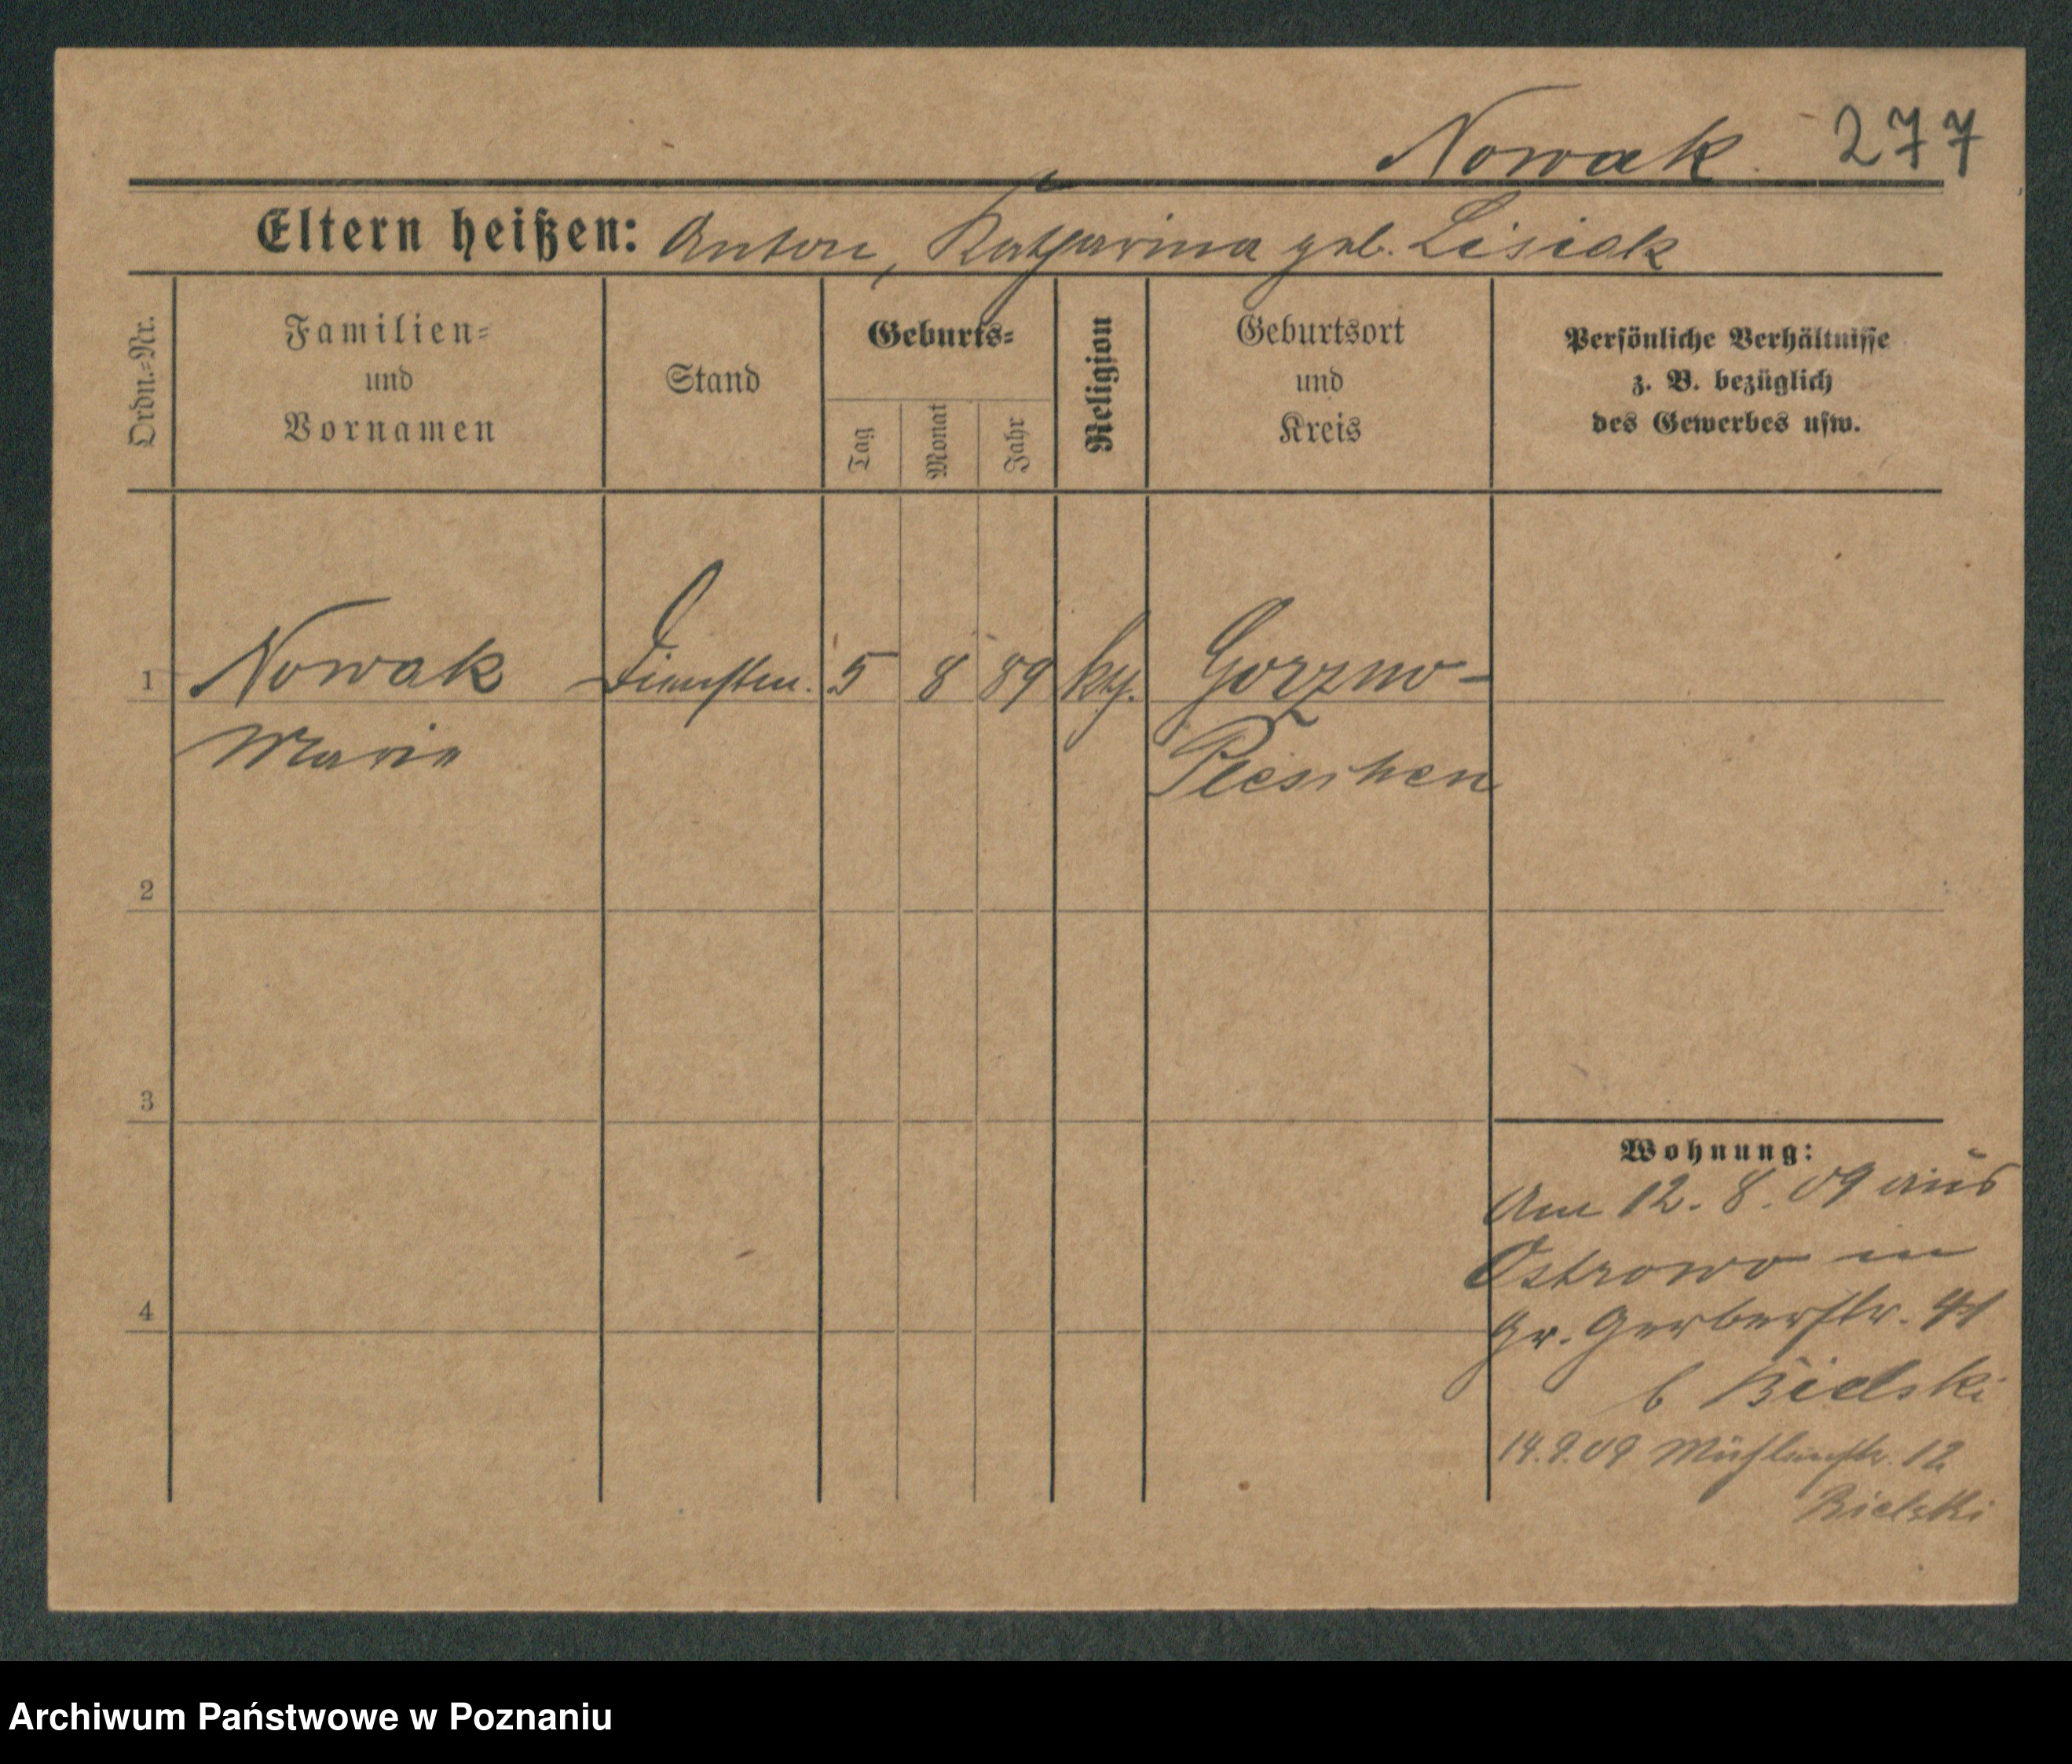 Nowak 277
Eltern heißen: Anton, Katharina geb. Lisiak
Ordn.-Nr.
Familien-
und
Vornamen
Stand
Geburts-
Tag
Monat
Jahr
Religion
Geburtsort
und
Kreis
Persönliche Verhältnisse
z. B. bezüglich
des Gewerbes usw.
1 Nowak Dienstm. 5 8 89 kth. Gorzno-
Marie Pleschen
2
3
Wohnung:
Am 12. 8. 09 aus
Ostrowo in
4
Gr. Gerberstr. 41
b Bielski
14.9.09 Mühlenstr. 12
Bielski
Archiwum Państwowe w Poznaniu